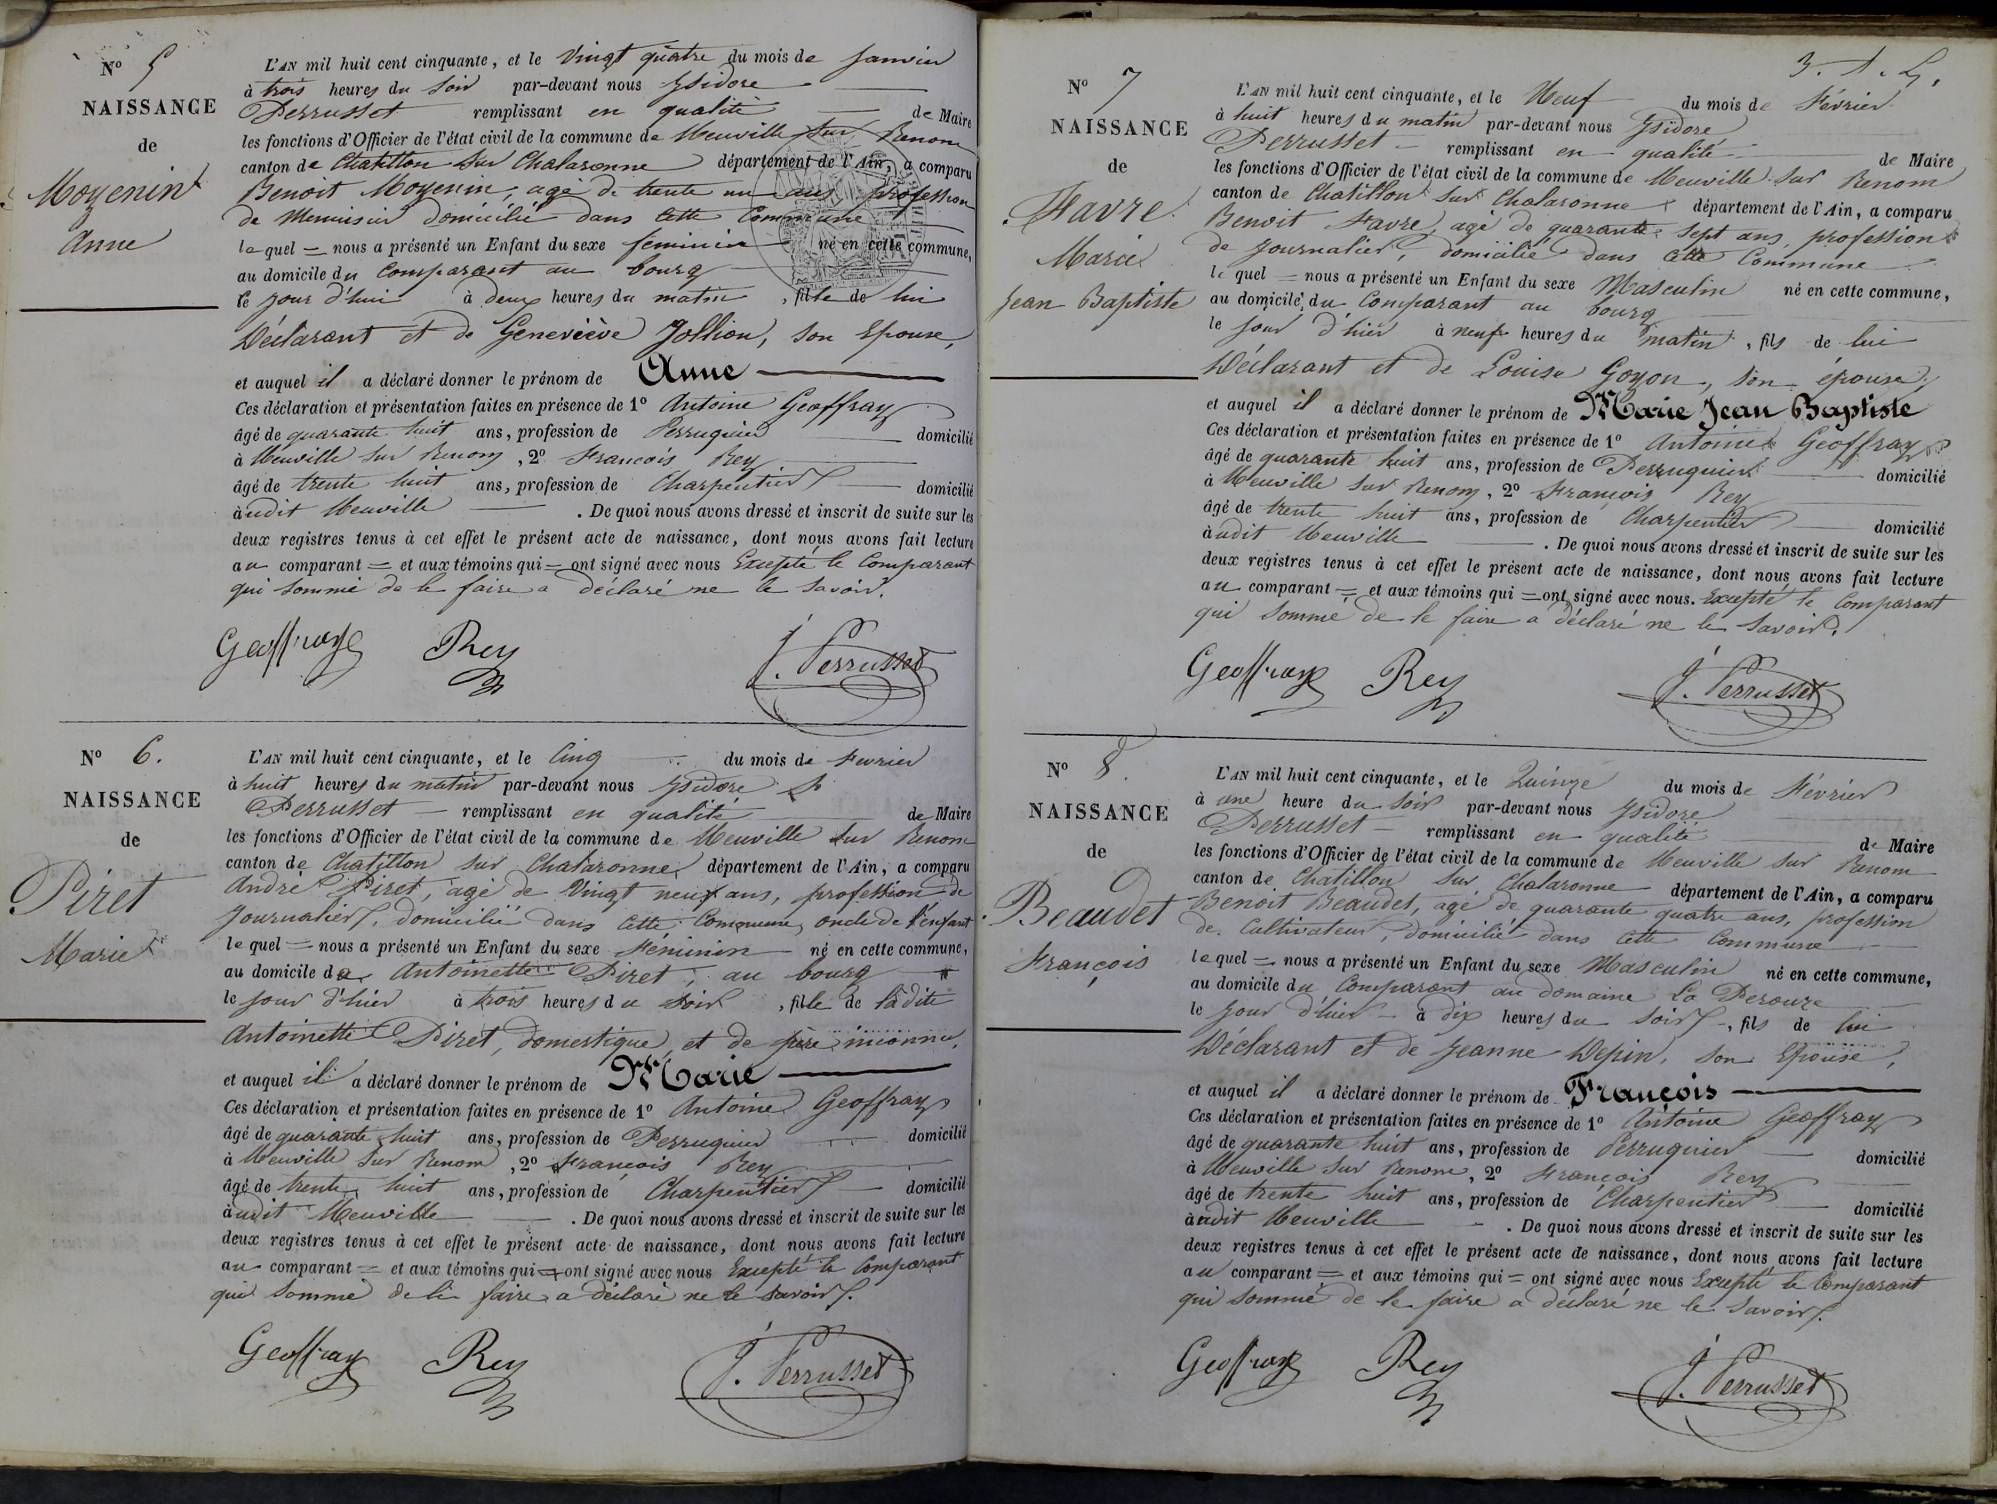 N° 5
NAISSANCE
de
Moyenin
Anne
L'AN mil huit cent cinquante, et le Vingt quatre du mois de Janvier
à trois heures du soir par-devant nous Ysidore
Perrusset remplissant en qualité de Maire
les fonctions d'Officier de l'état civil de la commune de Neuville sur Renom
canton de Chatillon sur Chalaronne département de l'Ain, a comparu
Benoit Moyenin, agé de trente un ans profession
de Menuisier domicilié dans cette Commune
lequel = nous a présenté un Enfant du sexe féminin né en cette commune,
au domicile du Comparant au bourg
le jour d'hui à deux heures du matin, fille de lui
Déclarant et de Geneviève Jollion, son Epouse,
et auquel il a déclaré donner le prénom de Anne
Ces déclaration et présentation faites en présence de 1° Antoine Geoffray
âgé de quarante huit ans, profession de Perruquier domicilié
à Neuville sur Renom, 2° François Rey
âgé de trente huit ans, profession de Charpentier domicilié
àudit Neuville . De quoi nous avons dressé et inscrit de suite sur les
deux registres tenus à cet effet le présent acte de naissance, dont nous avons fait lecture
au comparant = et aux témoins qui = ont signé avec nous Excepté le Comparant
qui sommé de le faire a déclaré ne le savoir.
Geoffray Rey J. Perrusset
N° 6.
NAISSANCE
de
Piret
Marie
L'AN mil huit cent cinquante, et le Cinq du mois de Fevrier
à huit heures du matin par-devant nous Ysidore
Perrusset remplissant en qualité de Maire
les fonctions d'Officier de l'état civil de la commune de Neuville sur Renom
canton de Chatillon sur Chalaronne département de l'Ain, a comparu
André Piret, agé de Vingt neuf ans, profession de
Journalier, domicilié dans cette Commune, oncle de l'enfant
lequel = nous a présenté un Enfant du sexe Féminin né en cette commune,
au domicile de Antoinette Piret, au bourg
le jour d'hier à trois heures du soir, fille de ladite
Antoinette Piret, domestique, et de père inconnu,
et auquel il a déclaré donner le prénom de Marie
Ces déclaration et présentation faites en présence de 1° Antoine Geoffray
âgé de quarante huit ans, profession de Perruquier domicilié
à Neuville sur Renom, 2° François Rey
âgé de trente huit ans, profession de Charpentier domicilié
àudit Neuville . De quoi nous avons dressé et inscrit de suite sur les
deux registres tenus à cet effet le présent acte de naissance, dont nous avons fait lecture
au comparant = et aux témoins qui = ont signé avec nous Excepté le Comparant
qui sommé de le faire a déclaré ne le savoir.
Geoffray Rey J. Perrusset
N° 7
NAISSANCE
de
Favre
Marie
Jean Baptiste
L'AN mil huit cent cinquante, et le Neuf du mois de Février
à huit heures du matin par-devant nous Ysidore
Perrusset remplissant en qualité de Maire
les fonctions d'Officier de l'état civil de la commune de Neuville sur Renom
canton de Chatillon sur Chalaronne département de l'Ain, a comparu
Benoit Favre, agé de quarante sept ans, profession
de Journalier, domicilié dans cette Commune
lequel = nous a présenté un Enfant du sexe Masculin né en cette commune,
au domicile du Comparant au bourg
le jour d'hier à neuf heures du matin, fils de lui
Déclarant et de Louise Goyon, son épouse,
et auquel il a déclaré donner le prénom de Marie Jean Baptiste
Ces déclaration et présentation faites en présence de 1° Antoine Geoffray
âgé de quarante huit ans, profession de Perruquier domicilié
à Neuville sur Renom, 2° François Rey
âgé de trente huit ans, profession de Charpentier domicilié
àudit Neuville . De quoi nous avons dressé et inscrit de suite sur les
deux registres tenus à cet effet le présent acte de naissance, dont nous avons fait lecture
au comparant = et aux témoins qui = ont signé avec nous. Excepté le Comparant
qui sommé de le faire a déclaré ne le savoir.
Geoffray Rey J. Perrusset
N° 8.
NAISSANCE
de
Beaudet
François
L'AN mil huit cent cinquante, et le Quinze du mois de Février
à une heure du soir par-devant nous Ysidore
Perrusset remplissant en qualité de Maire
les fonctions d'Officier de l'état civil de la commune de Neuville sur Renom
canton de Chatillon sur Chalaronne département de l'Ain, a comparu
Benoit Beaudet, agé de quarante quatre ans, profession
de Cultivateur, domicilié dans cette Commune
lequel = nous a présenté un Enfant du sexe Masculin né en cette commune,
au domicile du Comparant au domaine La Perouze
le jour d'hier à dix heures du soir, fils de lui
Déclarant et de Jeanne Depin, son Epouse,
et auquel il a déclaré donner le prénom de François
Ces déclaration et présentation faites en présence de 1° Antoine Geoffray
âgé de quarante huit ans, profession de Perruquier domicilié
à Neuville sur Renom, 2° François Rey
âgé de trente huit ans, profession de Charpentier domicilié
àudit Neuville . De quoi nous avons dressé et inscrit de suite sur les
deux registres tenus à cet effet le présent acte de naissance, dont nous avons fait lecture
au comparant = et aux témoins qui = ont signé avec nous Excepté le Comparant
qui sommé de le faire a déclaré ne le savoir.
Geoffray Rey J. Perrusset